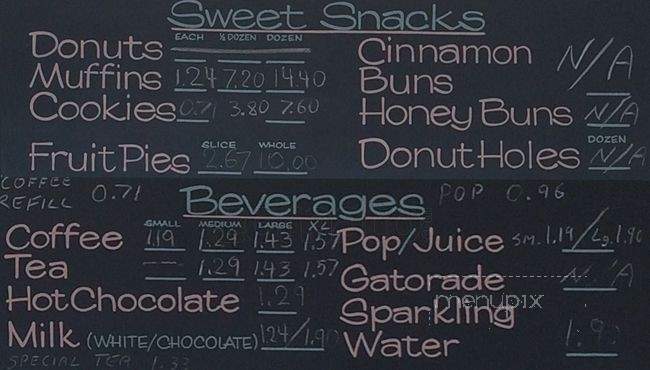 Sweet Snacks
EACH ½ DOZEN DOZEN
Donuts
Muffins 1.24 7.20 14.40
Cookies 0.71 3.80 7.60
SLICE WHOLE
Fruit Pies 2.67 10.00
Cinnamon Buns N/A
Honey Buns N/A
DOZEN
Donut Holes N/A
COFFEE REFILL 0.71
Beverages
POP 0.96
SMALL MEDIUM LARGE XL
Coffee 1.19 1.29 1.43 1.57
Tea --- 1.29 1.43 1.57
Hot Chocolate 1.29
Milk (WHITE/CHOCOLATE) 1.24/1.90
SPECIAL TEA 1.33
Pop/Juice sm. 1.19/Lg. 1.90
Gatorade N/A
Sparkling
Water
menupix